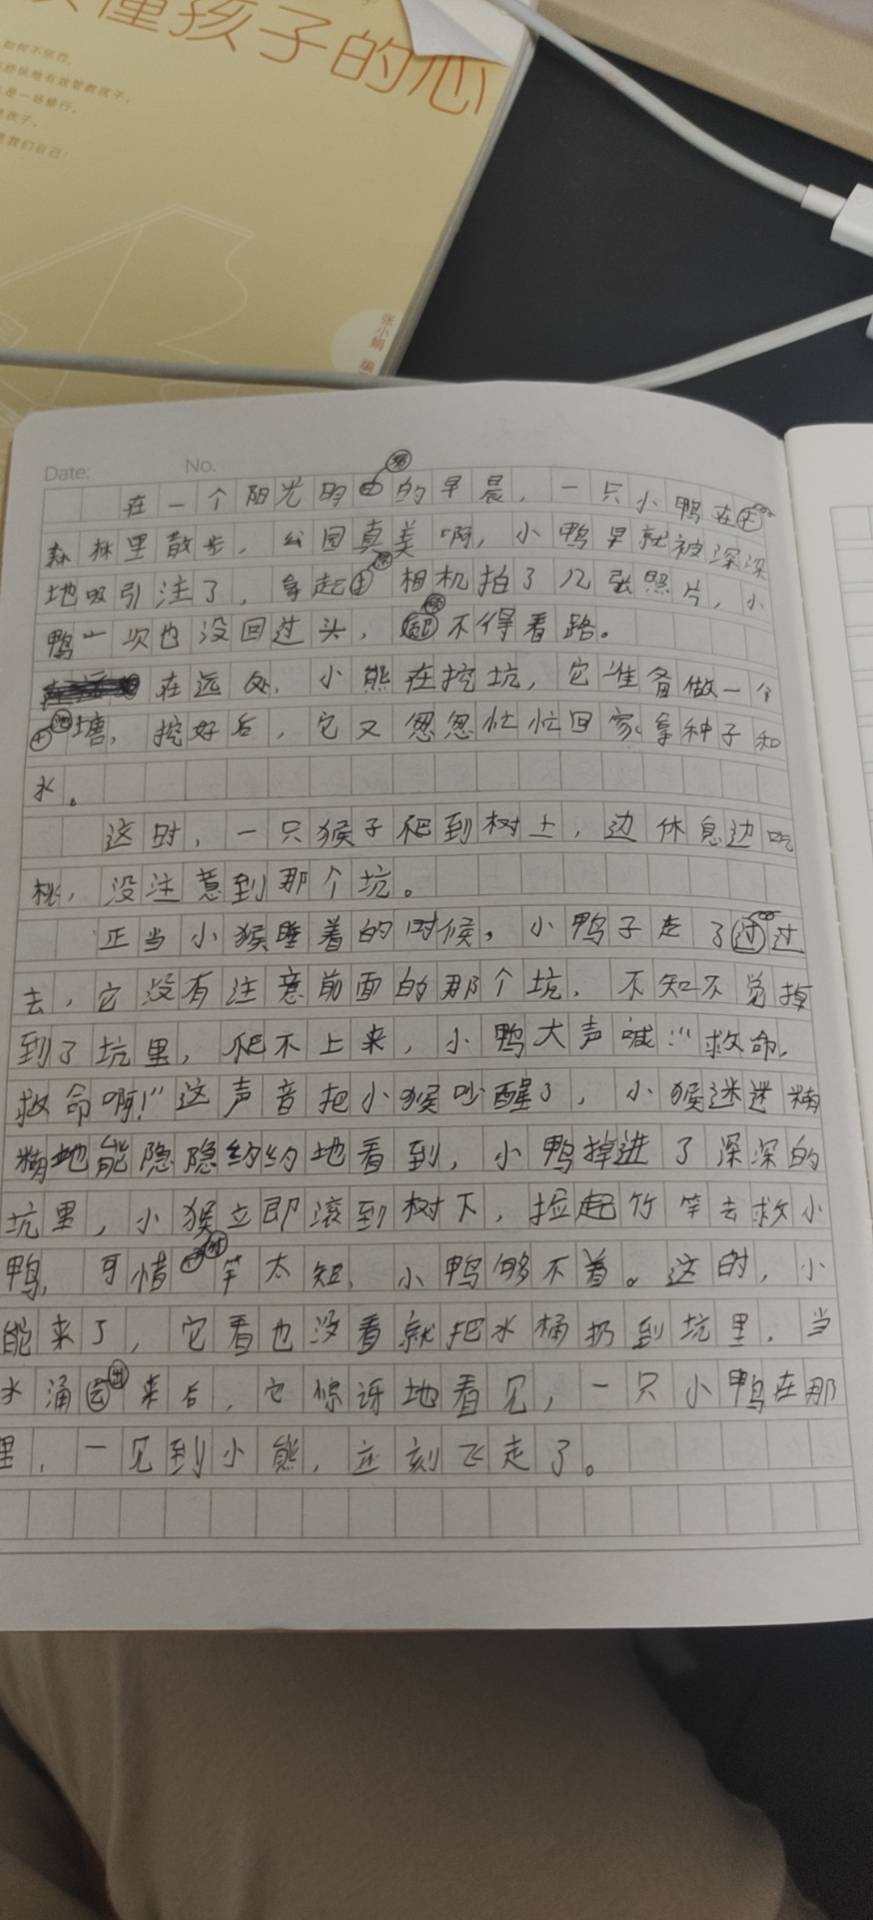 懂孩子的心
如何不惩罚、
是一场修行。
是我们自己!
张小娟 编
Date: No.
在一个阳光明媚的早晨，一只小鸭在
森林里散步，公园真美啊，小鸭早就被深深
地吸引注了，拿起相机拍了几张照片，小
鸭一次也没回过头，不得看路。
在远处，小熊在挖坑，它准备做一个
池塘，挖好后，它又怱怱忙忙回家拿种子和
水。
这时，一只猴子爬到树上，边休息边吃
桃，没注意到那个坑。
正当小猴睡着的时候，小鸭子走了过
去，它没有注意前面的那个坑，不知不觉掉
到了坑里，爬不上来，小鸭大声喊："救命，
救命啊!"这声音把小猴吵醒了，小猴迷迷糊
糊地能隐隐约约地看到，小鸭掉进了深深的
坑里，小猴立即滚到树下，捡起竹竿去救小
鸭，可惜竹竿太短，小鸭够不着。这时，小
能来了，它看也没看就把水桶扔到坑里，当
水涌出来后，它惊讶地看见，一只小鸭在那
里，一见到小熊，立刻飞走了。